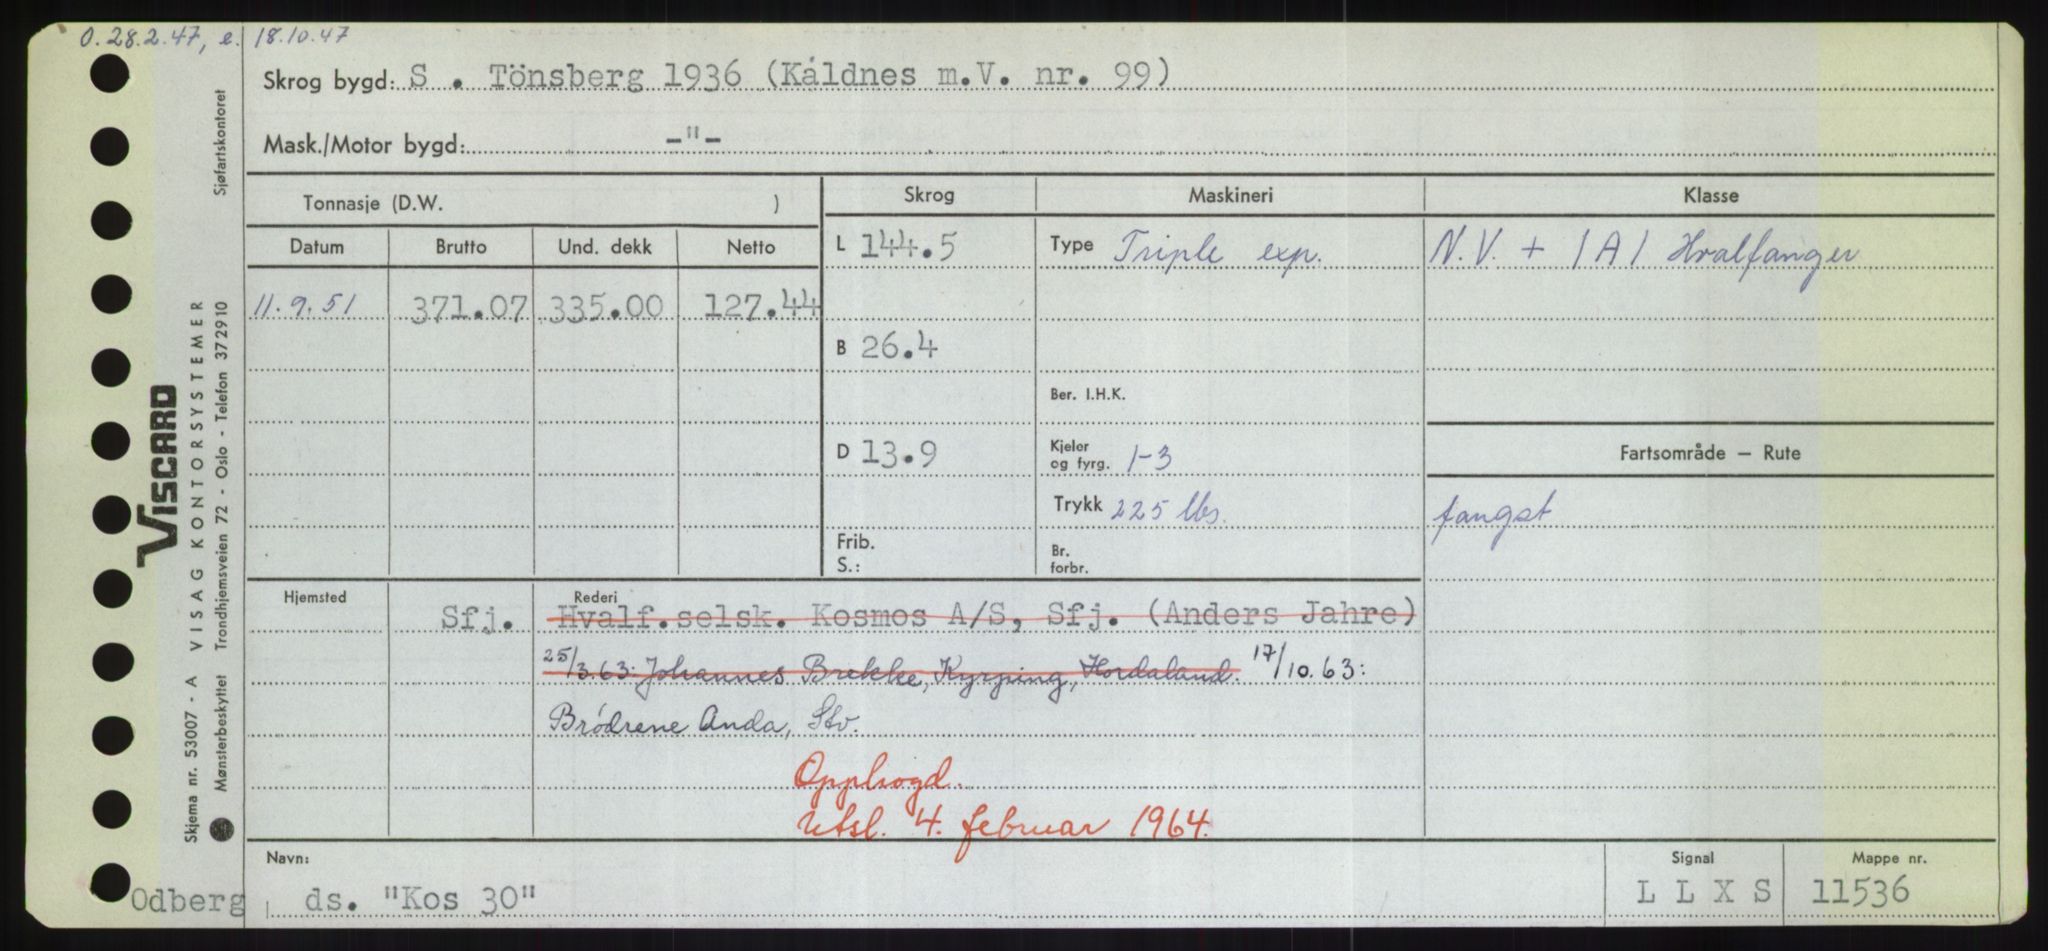 O. 28.2.47, e. 18.10.47
Skrog bygd: S . Tönsberg 1936 (Kåldnes m.V. nr. 99)
Mask./Motor bygd: -"-
Tonnasje (D.W. )
Datum Brutto Und. dekk Netto
11.9.51 371.07 335.00 127.44
Skrog
L 144.5
B 26.4
D 13.9
Frib.
S.:
Maskineri
Type Triple exp.
Ber. I.H.K.
Kjeler
og fyrg. 1-3
Trykk 225 lbs.
Br.
forbr.
Klasse
N.V. + /A/ Hvalfanger
Fartsområde — Rute
fangst
Hjemsted Rederi
Sfj. Hvalf.selsk. Kosmos A/S, Sfj. (Anders Jahre)
25/3.63: Johannes Brekke, Kyrping, Hordaland. 17/10.63:
Brödrene Anda, Stv.
Opphogd.
Utsl. 4. februar 1964.
Navn: Signal Mappe nr.
Odberg ds. "Kos 30" L L X S 11536
VISCARD
Skjema nr. 53007 - A VISAG KONTORSYSTEMER
Mønsterbeskyttet Trondhjemsveien 72 - Oslo - Telefon 372910 Sjøfartskontoret